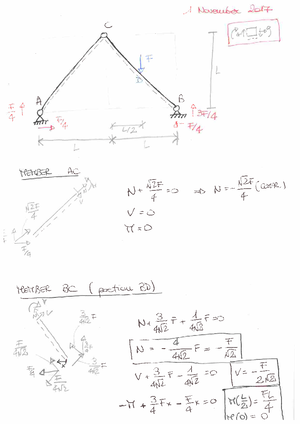 1 November 2017
C
F
D
A
B
L
F/4
3F/4
F/4
F/4
L/2
L
L
MEMBER AC
N + √2F/4 = 0 ⇒ N = -√2F/4
V = 0
M = 0
√2F/4
F/4
MEMBER BC (portion BD)
N + 3/4√2 F + 1/4√2 F = 0
N = -4/4√2 F = -F/√2
V + 3/4√2 F - 1/4√2 F = 0
V = -F/2√2
-M + 3/4 Fx - F/4 x = 0
M(L/2) = FL/4
M(0) = 0
3/4 F
F/4